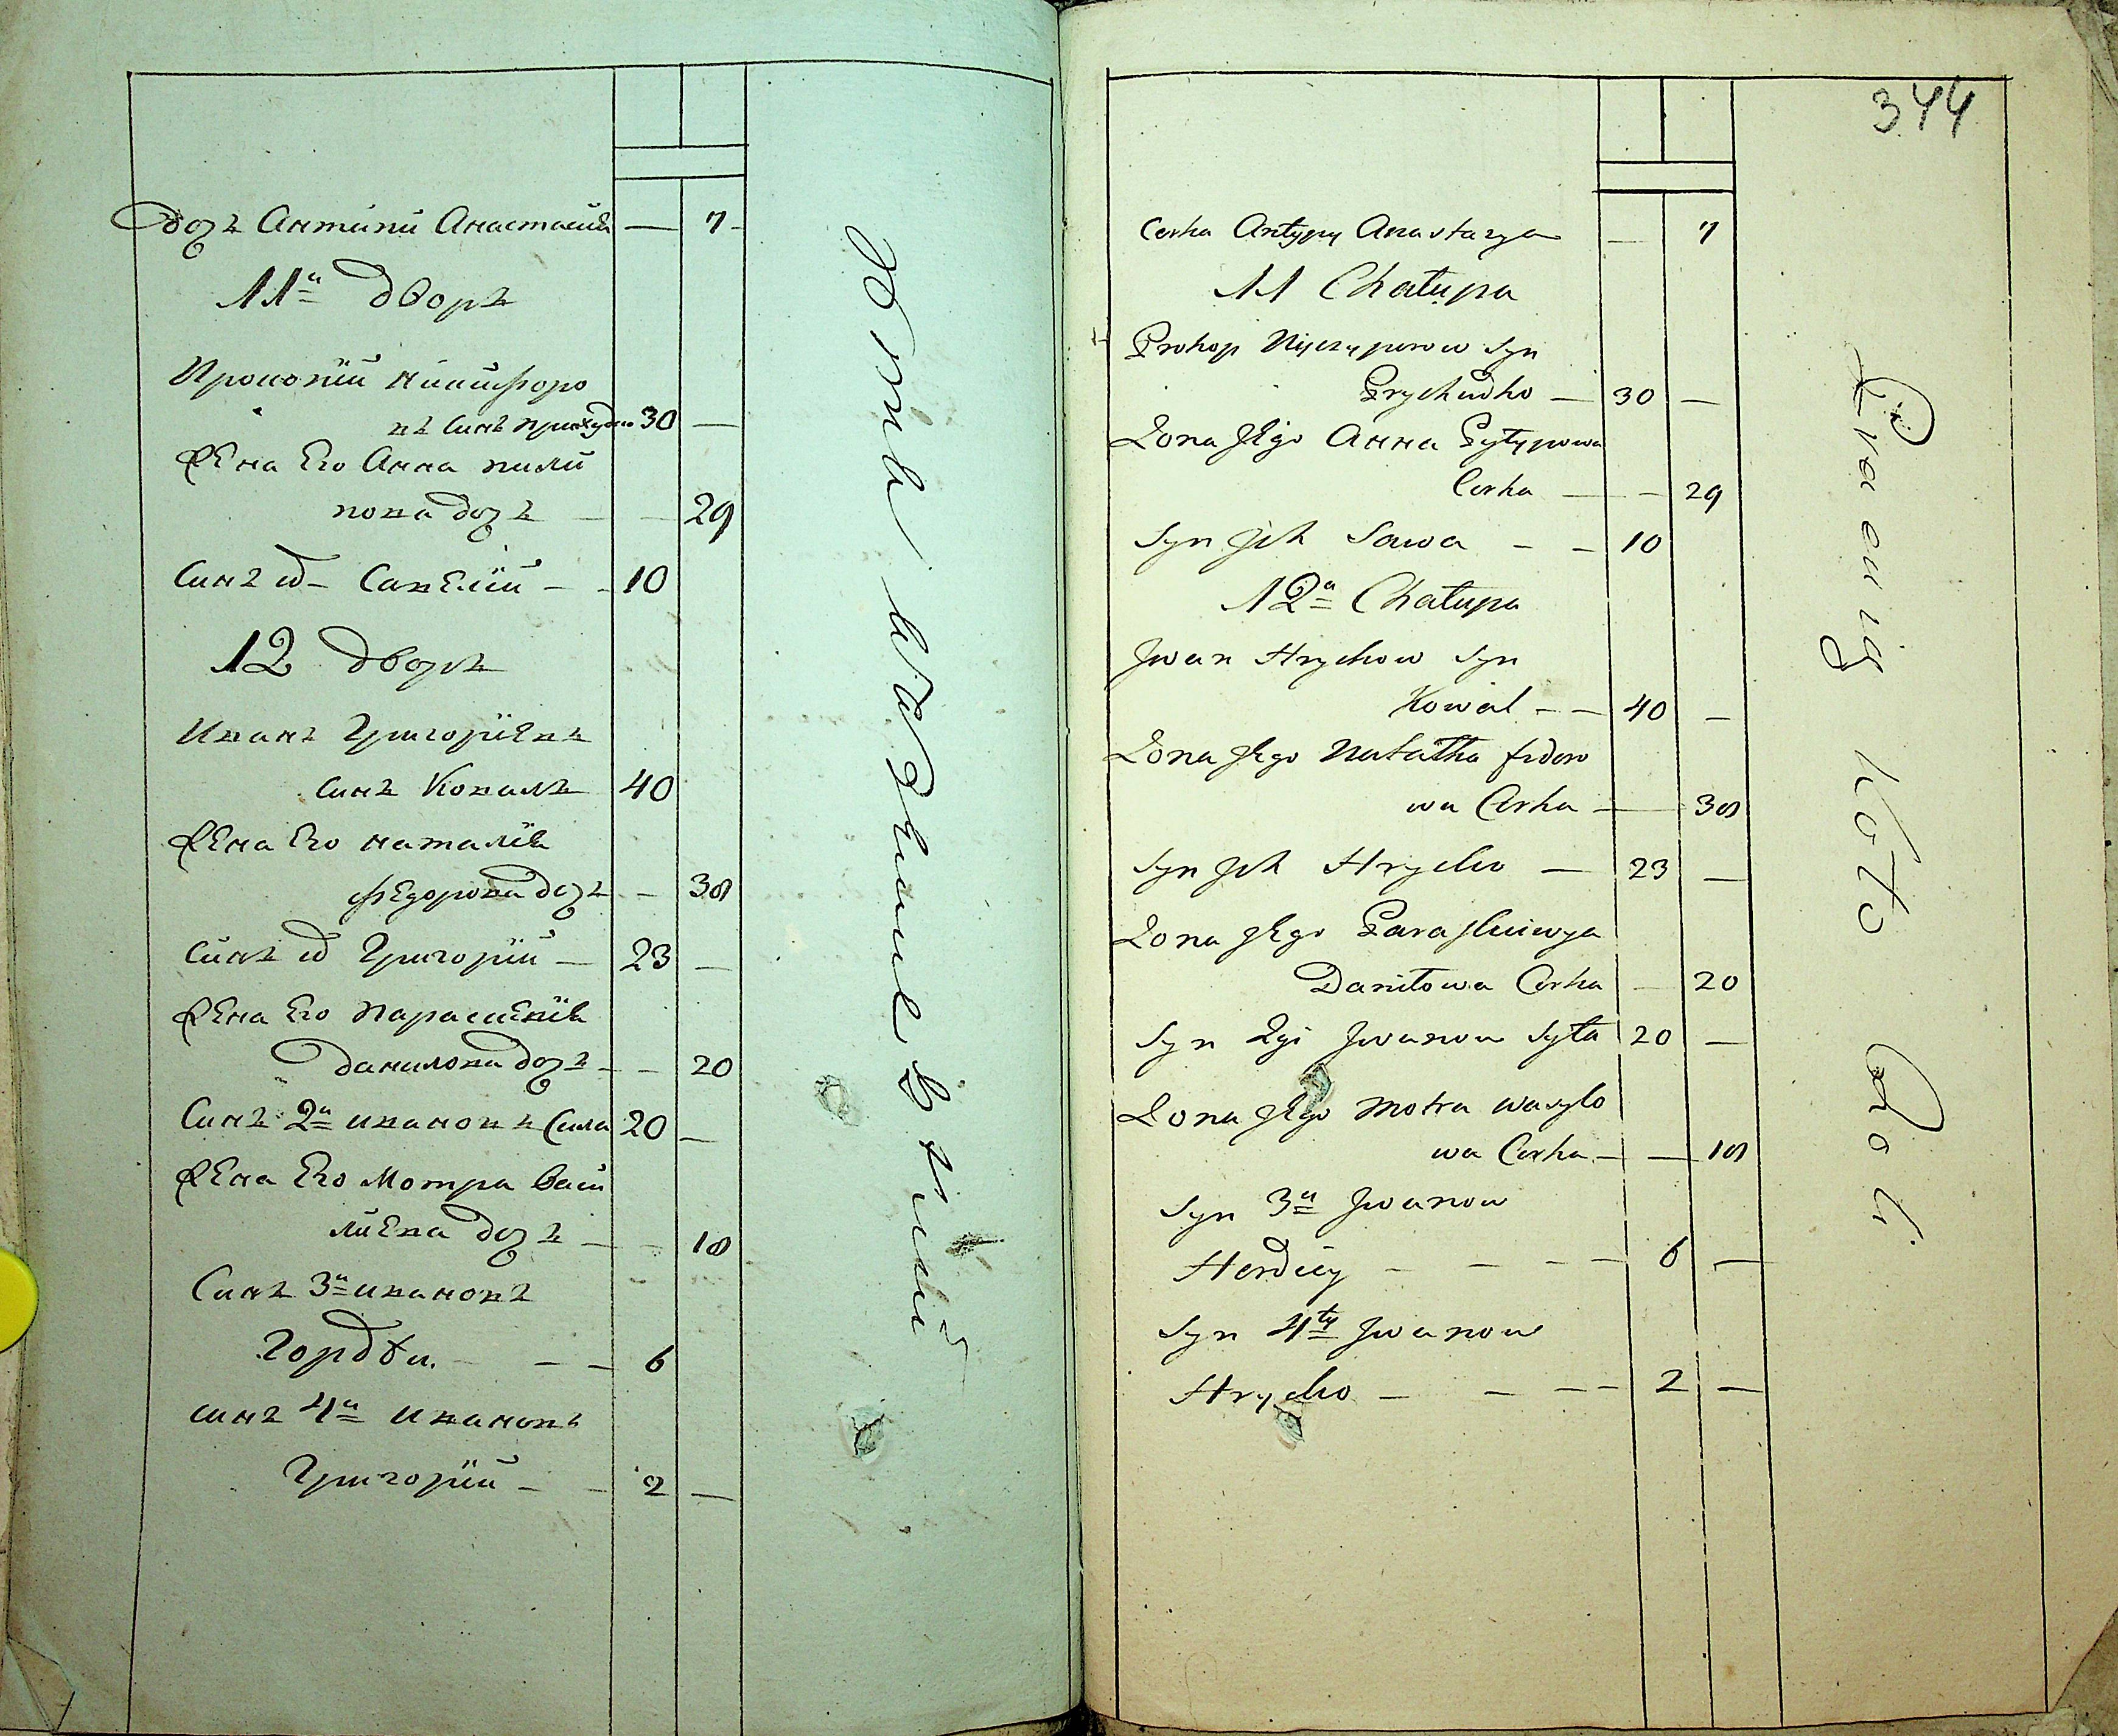 дочь Антипи Анастасия — 7
11й дворъ
Прокопiй Никифоро
въ СинъПрихудко 30 —
Жена Его Анна пили
пова дочь — — 29
Синъ их Савелiй — 10
12 дворъ
Иванъ Григорiевъ
синъ Коваль 40
Жена Его наталiя
федорова дочь — 38
Синъ их Григорiй — 23 —
Жена Его Парасщевiя
данилова дочь — — 20
Синъ 2й ивановъ Сила 20 —
Жена Его Мотра васи
лиева дочь — — 18
Синъ 3й ивановъ
Гордѣй — — — 6
синъ 4й ивановъ
Григорiй — — 2 —
344
Corka Antypy Anastazya — 7
11 Chałupa
Prokop Niyczyporow Syn
Prychudko — 30 —
Żona Jego Анна Pyłypowa
Corka — — 29
Syn Jch Sawa — — 10
12a Chałupa
Jwan Hrychow Syn
Kowal — — 40 —
Żona Jego Natałka fedoro
wa Corka — 38
Syn Jch Hrycko — 23 —
Żona Jego Paraskiewya
Daniłowa Corka — 20
Syn 2gi Jwanow Syła 20 —
Żona Jego Motra wasylo
wa Corka — — 18
Syn 3й Jwanow
Hordiey — — — — 6 —
Syn 4ty Jwanow
Hrycko — — — — 2 —